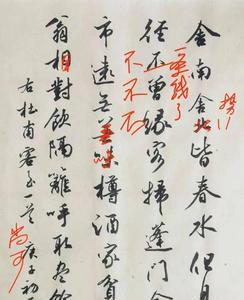 舍南舍北皆春水但見
徑不曾緣客掃蓬門今
不不不
市遠無兼味樽酒家貧
翁相對飲隔籬呼取盡餘
右杜甫客至一首庚子初
尚可